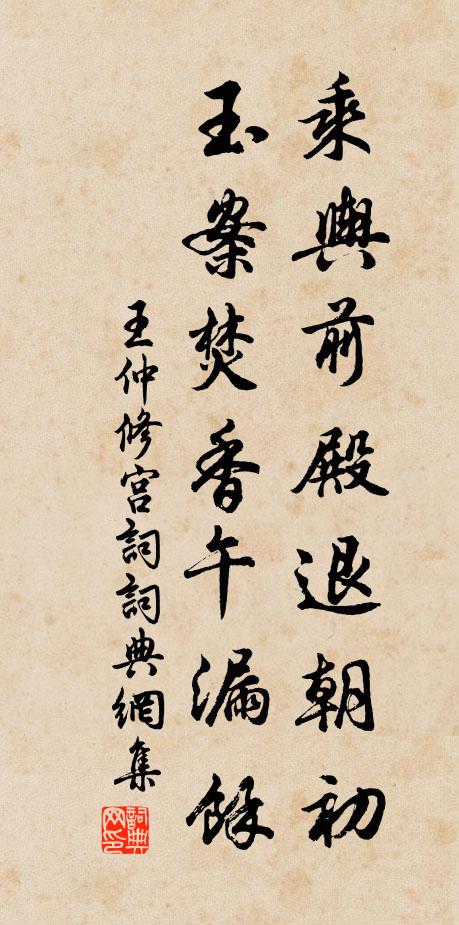 乘輿前殿退朝初
玉案焚香午漏餘
王仲修宮詞詞典網集
詞典網印